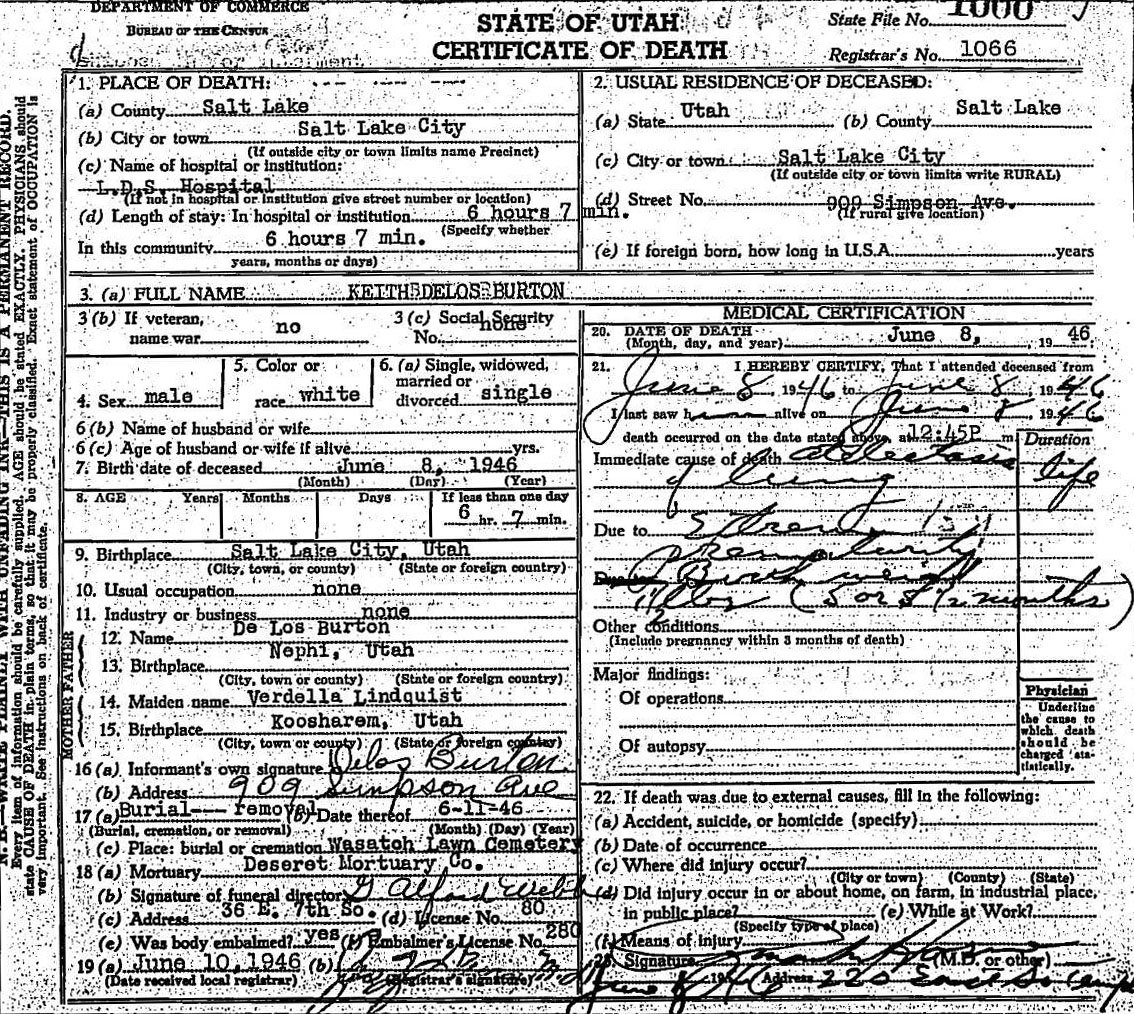 DEPARTMENT OF COMMERCE
BUREAU OF THE CENSUS
STATE OF UTAH
CERTIFICATE OF DEATH
State File No. 1066
Registrar's No. 1066
N. B.—WRITE PLAINLY WITH UNFADING INK—THIS IS A PERMANENT RECORD.
Every item of information should be carefully supplied. AGE should be stated EXACTLY. PHYSICIANS should
state CAUSE OF DEATH in plain terms, so that it may be properly classified. Exact statement of OCCUPATION is
very important. See instructions on back of certificate.
1. PLACE OF DEATH:
(a) County Salt Lake
(b) City or town Salt Lake City
(If outside city or town limits name Precinct)
(c) Name of hospital or institution:
L.D.S. Hospital
(If not in hospital or institution give street number or location)
(d) Length of stay: In hospital or institution 6 hours 7 min.
(Specify whether
In this community 6 hours 7 min.
years, months or days)
2. USUAL RESIDENCE OF DECEASED:
(a) State Utah (b) County Salt Lake
(c) City or town Salt Lake City
(If outside city or town limits write RURAL)
(d) Street No. 909 Simpson Ave.
(If rural give location)
(e) If foreign born, how long in U.S.A. years
3. (a) FULL NAME KEITH DELOS BURTON
3 (b) If veteran, name war no
3 (c) Social Security No. none
4. Sex male
5. Color or race white
6. (a) Single, widowed, married or divorced single
6 (b) Name of husband or wife
6 (c) Age of husband or wife if alive yrs.
7. Birth date of deceased June 8, 1946
(Month) (Day) (Year)
8. AGE Years Months Days If less than one day
6 hr. 7 min.
9. Birthplace Salt Lake City, Utah
(City, town, or county) (State or foreign country)
10. Usual occupation none
11. Industry or business none
FATHER
12. Name De Los Burton
13. Birthplace Nephi, Utah
(City, town or county) (State or foreign country)
MOTHER
14. Maiden name Verdella Lindquist
15. Birthplace Koosharem, Utah
(City, town or county) (State or foreign country)
16 (a) Informant's own signature Delos Burton
(b) Address 909 Simpson Ave
17 (a) Burial--- removal (b) Date thereof 6-11-46
(Burial, cremation, or removal) (Month) (Day) (Year)
(c) Place: burial or cremation Wasatch Lawn Cemetery
18 (a) Mortuary Deseret Mortuary Co.
(b) Signature of funeral director G Alford Webb
(c) Address 36 E. 7th So. (d) License No. 80
(e) Was body embalmed? yes (f) Embalmer's License No. 280
19 (a) June 10, 1946 (b)
(Date received local registrar) (Registrar's signature)
MEDICAL CERTIFICATION
20. DATE OF DEATH June 8, 1946
(Month, day, and year)
21. I HEREBY CERTIFY, That I attended deceased from
June 8, 1946 to June 8 1946
I last saw him alive on June 8 1946
death occurred on the date stated above, at 12:45P m
Duration
Immediate cause of death atelectasis life
of lung
Due to Extreme
prematurity
Due to Birth weight
(5 or 5 1/2 months)
Other conditions
(Include pregnancy within 3 months of death)
Major findings:
Of operations
Of autopsy
Physician
Underline the cause to which death should be charged statistically.
22. If death was due to external causes, fill in the following:
(a) Accident, suicide, or homicide (specify)
(b) Date of occurrence
(c) Where did injury occur?
(City or town) (County) (State)
(d) Did injury occur in or about home, on farm, in industrial place,
in public place? (e) While at Work?
(Specify type of place)
(f) Means of injury
23. Signature (M.D. or other)
June 1946 Address 220 East So Temple